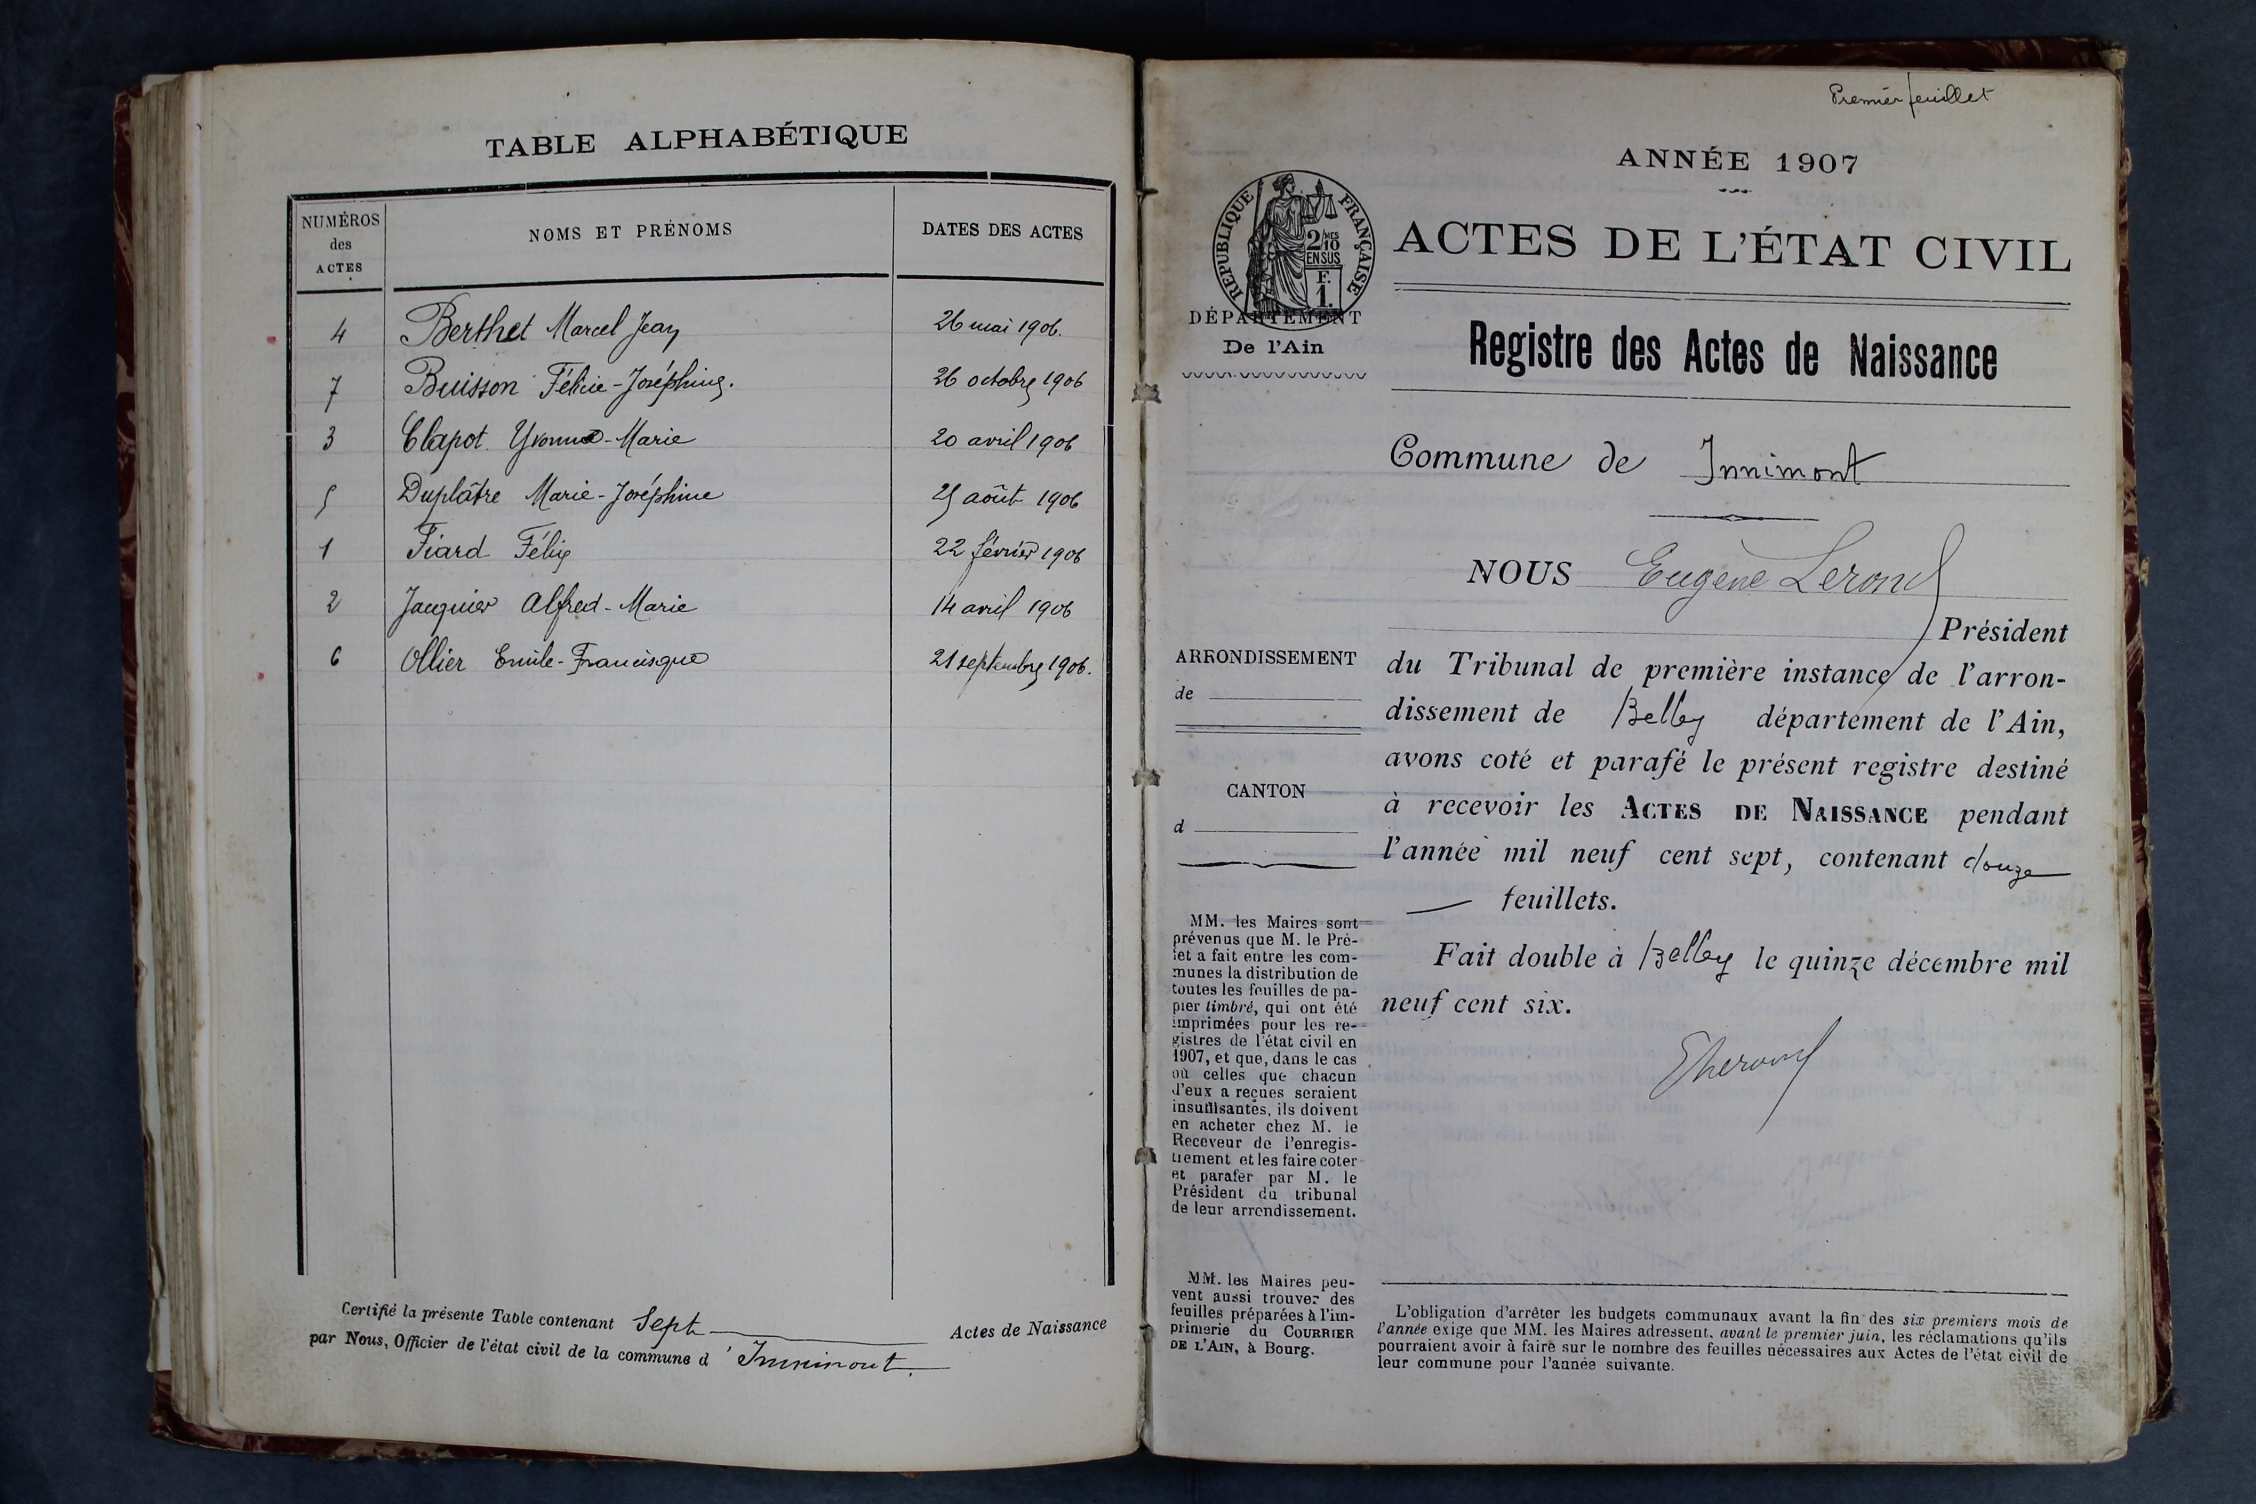 TABLE ALPHABÉTIQUE
NUMÉROS des ACTES NOMS ET PRÉNOMS DATES DES ACTES
4 Berthet Marcel Jean 26 mai 1906.
7 Buisson Félicie-Joséphine. 26 octobre 1906
3 Clapot Yvonne-Marie 20 avril 1906
5 Duplâtre Marie-Joséphine 25 août 1906
1 Fiard Félix 22 février 1906
2 Jacquier Alfred-Marie 14 avril 1906
6 Ollier Emile-Francisque 21 septembre 1906.
Certifié la présente Table contenant Sept Actes de Naissance
par Nous, Officier de l'état civil de la commune d'Innimont.
Premier feuillet
ANNÉE 1907
RÉPUBLIQUE FRANÇAISE
2 MES
10
EN SUS
F.
1.
ACTES DE L'ÉTAT CIVIL
DÉPARTEMENT
De l'Ain
Registre des Actes de Naissance
Commune de Innimont
NOUS Eugène Lerond
Président
ARRONDISSEMENT
de
du Tribunal de première instance de l'arron-
dissement de Belley département de l'Ain,
avons coté et parafé le présent registre destiné
CANTON
d
à recevoir les ACTES DE NAISSANCE pendant
l'année mil neuf cent sept, contenant douze
feuillets.
Fait double à Belley le quinze décembre mil
neuf cent six.
MM. les Maires sont
prévenus que M. le Pré-
fet a fait entre les com-
munes la distribution de
toutes les feuilles de pa-
pier timbré, qui ont été
imprimées pour les re-
gistres de l'état civil en
1907, et que, dans le cas
où celles que chacun
d'eux a reçues seraient
insuffisantes, ils doivent
en acheter chez M. le
Receveur de l'enregis-
trement et les faire coter
et parafer par M. le
Président du tribunal
de leur arrondissement.
MM. les Maires peu-
vent aussi trouver des
feuilles préparées à l'im-
primerie du COURRIER
DE L'AIN, à Bourg.
L'obligation d'arrêter les budgets communaux avant la fin des six premiers mois de
l'année exige que MM. les Maires adressent, avant le premier juin, les réclamations qu'ils
pourraient avoir à faire sur le nombre des feuilles nécessaires aux Actes de l'état civil de
leur commune pour l'année suivante.